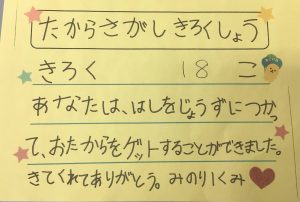 たからさがし きろくしょう
きろく 18 こ
あなたは、はしをじょうずにつかっ
て、おたからをゲットすることができました。
きてくれてありがとう。みのり1くみ